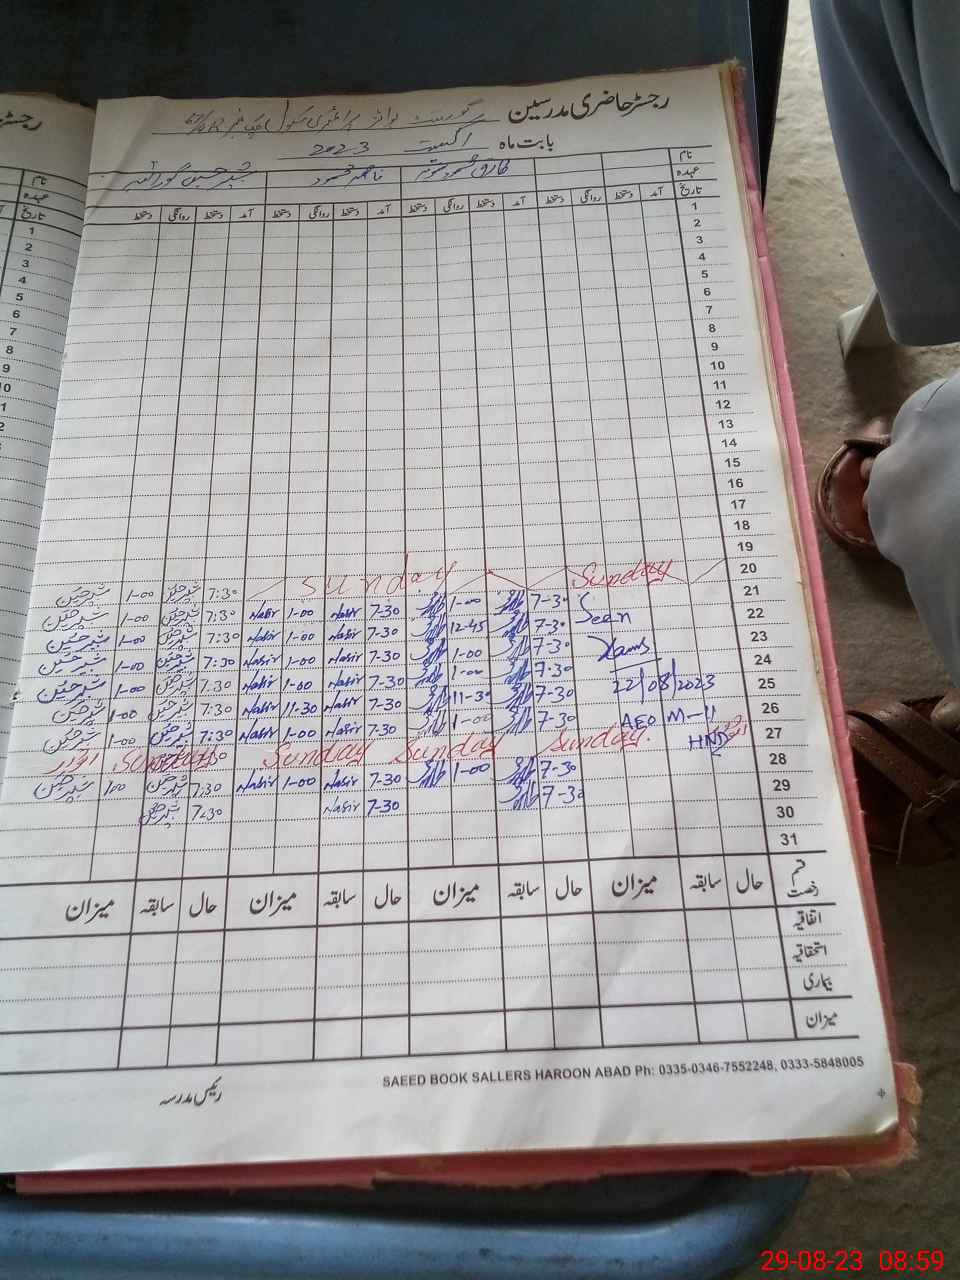 رجسٹر حاضری مدرسین
گورنمنٹ بوائز پرائمری سکول چک نمبر
بابت ماہ اگست 2023
نام فاروق محمود ناصر محمود شبیر حسین
عہدہ
تاریخ آمد دستخط روانگی دستخط آمد دستخط روانگی دستخط آمد دستخط روانگی دستخط
1
2
3
4
5
6
7
8
9
10
11
12
13
14
15
16
17
18
19
20 Sunday Sunday 7:30 شبیر حسین 1-00 شبیر حسین
21 7-30 1-00 7-30 Nasir 1-00 Nasir 7:30 شبیر حسین 1-00 شبیر حسین
22 Seen 7-30 12-45 7-30 Nasir 1-00 Nasir 7:30 شبیر حسین 1-00 شبیر حسین
23 7-30 1-00 7-30 Nasir 1-00 Nasir 7:30 شبیر حسین 1-00 شبیر حسین
24 22/08/2023 7-30 1-00 7-30 Nasir 1-00 Nasir 7:30 شبیر حسین 1-00 شبیر حسین
25 7-30 11-30 7-30 Nasir 11-30 Nasir 7:30 شبیر حسین 1-00 شبیر حسین
26 AEO M-11 7-30 1-00 7-30 Nasir 1-00 Nasir 7:30 شبیر حسین 1-00 شبیر حسین
27 HND اتوار Sunday Sunday Sunday Sunday اتوار
28 7-30 1-00 7-30 Nasir 1-00 Nasir 7:30 شبیر حسین 1-00 شبیر حسین
29 7-30 7-30 Nasir 7:30 شبیر حسین
30
31
قسم رخصت حال سابقہ میزان حال سابقہ میزان حال سابقہ میزان حال سابقہ میزان
اتفاقیہ
استحقاقیہ
بیماری
میزان
SAEED BOOK SALLERS HAROON ABAD Ph: 0335-0346-7552248, 0333-5848005
رئیس مدرسہ
رجسٹر
نام
عہدہ
تاریخ
1
2
3
4
5
6
7
8
9
29-08-23 08:59